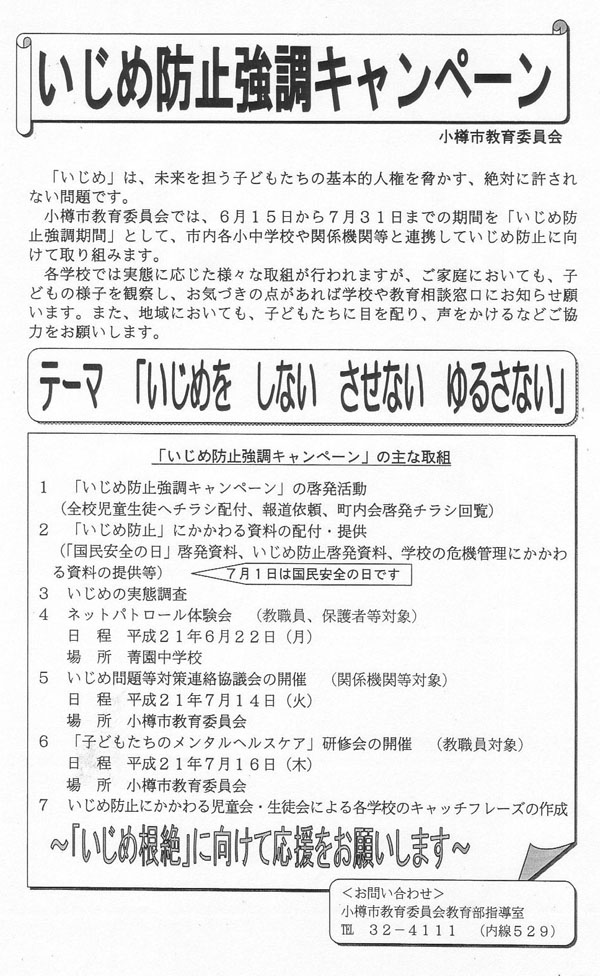 いじめ防止強調キャンペーン
小樽市教育委員会
「いじめ」は、未来を担う子どもたちの基本的人権を脅かす、絶対に許され
ない問題です。
小樽市教育委員会では、６月１５日から７月３１日までの期間を「いじめ防
止強調期間」として、市内各小中学校や関係機関等と連携していじめ防止に向
けて取り組みます。
各学校では実態に応じた様々な取組が行われますが、ご家庭においても、子
どもの様子を観察し、お気づきの点があれば学校や教育相談窓口にお知らせ願
います。また、地域においても、子どもたちに目を配り、声をかけるなどご協
力をお願いします。
テーマ 「いじめを しない させない ゆるさない」
「いじめ防止強調キャンペーン」の主な取組
１ 「いじめ防止強調キャンペーン」の啓発活動
（全校児童生徒へチラシ配付、報道依頼、町内会啓発チラシ回覧）
２ 「いじめ防止」にかかわる資料の配付・提供
（「国民安全の日」啓発資料、いじめ防止啓発資料、学校の危機管理にかかわ
る資料の提供等） ７月１日は国民安全の日です
３ いじめの実態調査
４ ネットパトロール体験会 （教職員、保護者等対象）
日 程 平成２１年６月２２日（月）
場 所 菁園中学校
５ いじめ問題等対策連絡協議会の開催 （関係機関等対象）
日 程 平成２１年７月１４日（火）
場 所 小樽市教育委員会
６ 「子どもたちのメンタルヘルスケア」研修会の開催 （教職員対象）
日 程 平成２１年７月１６日（木）
場 所 小樽市教育委員会
７ いじめ防止にかかわる児童会・生徒会による各学校のキャッチフレーズの作成
～「いじめ根絶」に向けて応援をお願いします～
＜お問い合わせ＞
小樽市教育委員会教育部指導室
℡ ３２－４１１１ （内線５２９）